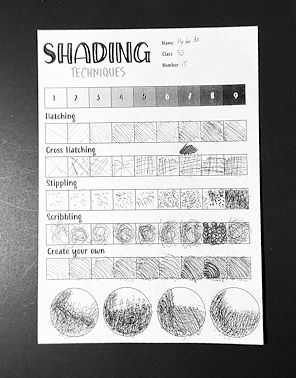 SHADING
TECHNIQUES
Name
Class
Number 15
1 2 3 4 5 6 7 8 9
Hatching
Cross Hatching
Stippling
Scribbling
Create your own